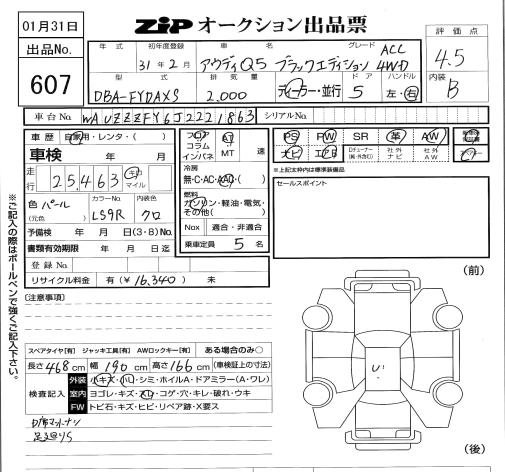 01月31日
ZIP オークション出品票
出品No.
607
年式
初年度登録
31年2月
車名
アウディQ5 ブラックエディション
グレード
ACC
4WD
評価点
4.5
型式
DBA-FYDAXS
排気量
2.000
ディーラー・並行
ドア
5
ハンドル
左・右
内装
B
車台No.
WAUZZZFY6J2221863
シリアルNo.
車歴
自家用・レンタ・( )
車検 年 月
走行
25,463
キロ
マイル
色
(元色)
パール
カラーNo.
LS9R
内装色
クロ
予備検 年 月 日(3・8)No.
書類有効期限 年 月 日迄
登録No.
リサイクル料金 有(¥16,340) 未
フロア
コラム
インパネ
AT
MT
速
冷房
無・C・AC・AAC( )
燃料
ガソリン・軽油・電気・
その他( )
Nox 適合・非適合
乗車定員 5 名
PS PW SR 革 AW
ナビ エアB
社外
ナビ
社外
AW
※上記太枠内は標準装備品
セールスポイント
※ご記入の際はボールペンで強くご記入下さい。
(注意事項)
スペアタイヤ[有] ジャッキ工具[有] AWロックキー[有] ある場合のみ○
長さ468cm 幅190cm 高さ166cm (車検証上の寸法)
検査記入
外装
小キズ・小凹・シミ・ホイルA・ドアミラー(A・ワレ)
室内
ヨゴレ・キズ・スレ・コゲ・穴・キレ・破れ・ウキ
FW
トビ石・キズ・ヒビ・リペア跡・X要ス
(前)
(後)